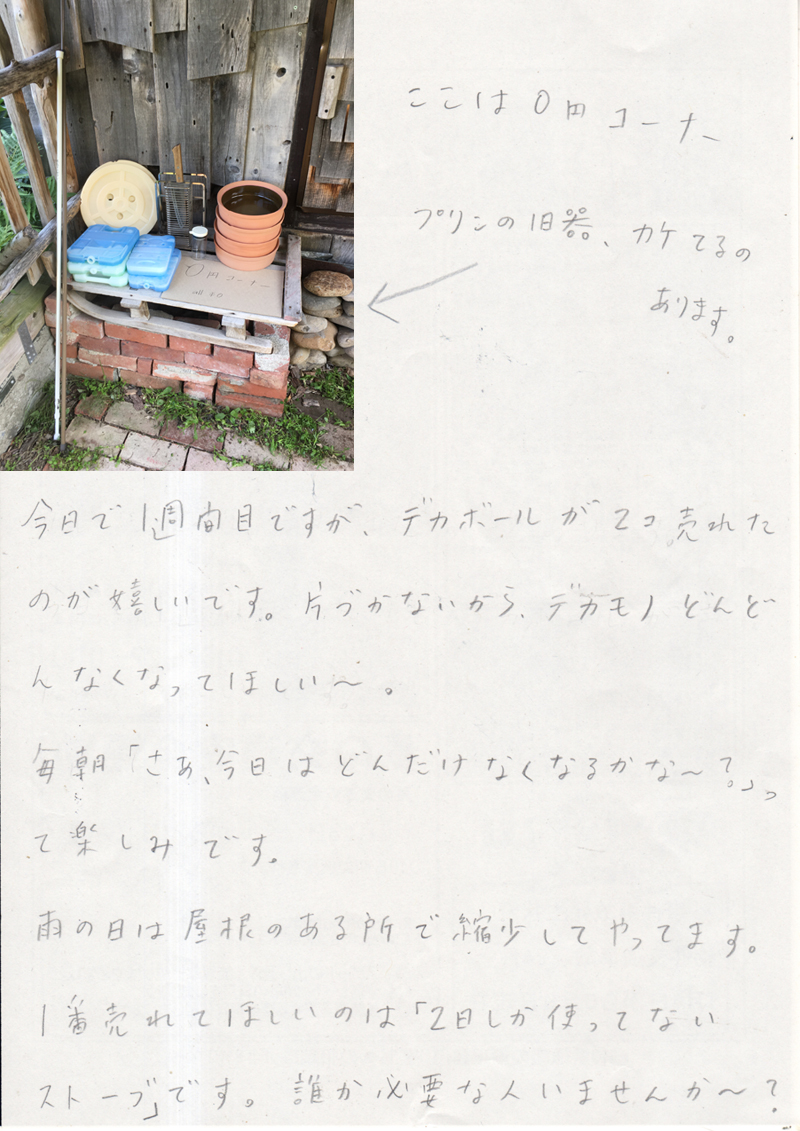 ここは0円コーナー
プリンの旧器、カケてるの
あります。
0円コーナー
今日で1週間目ですが、デカボールが2コ売れた
のが嬉しいです。片づかないから、デカモノどんど
んなくなってほしい〜。
毎朝「さあ、今日はどんだけなくなるかな〜?。」っ
て楽しみです。
雨の日は屋根のある所で縮少してやってます。
1番売れてほしいのは「2日しか使ってない
ストーブ」です。誰か必要な人いませんか〜?